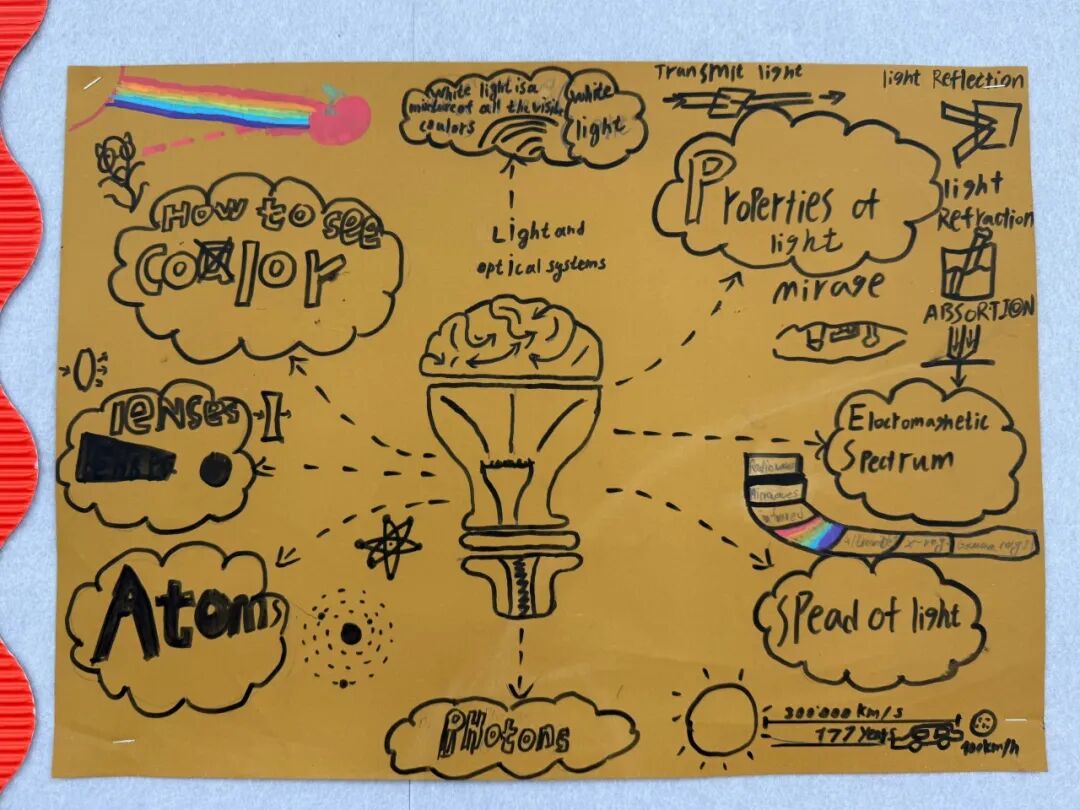 White light is a
mixture of all the visible
coulors
White
light
Transmit light
light Reflection
How to see
Color
Properties of
light
light
Refraction
Light and
optical systems
mirage
ABSORTION
lenses
Electromagnetic
Spectrum
Radiowaves
infrared
x-Ray
Atoms
Spead of light
Photons
300'000 km/s
177 years
100km/h